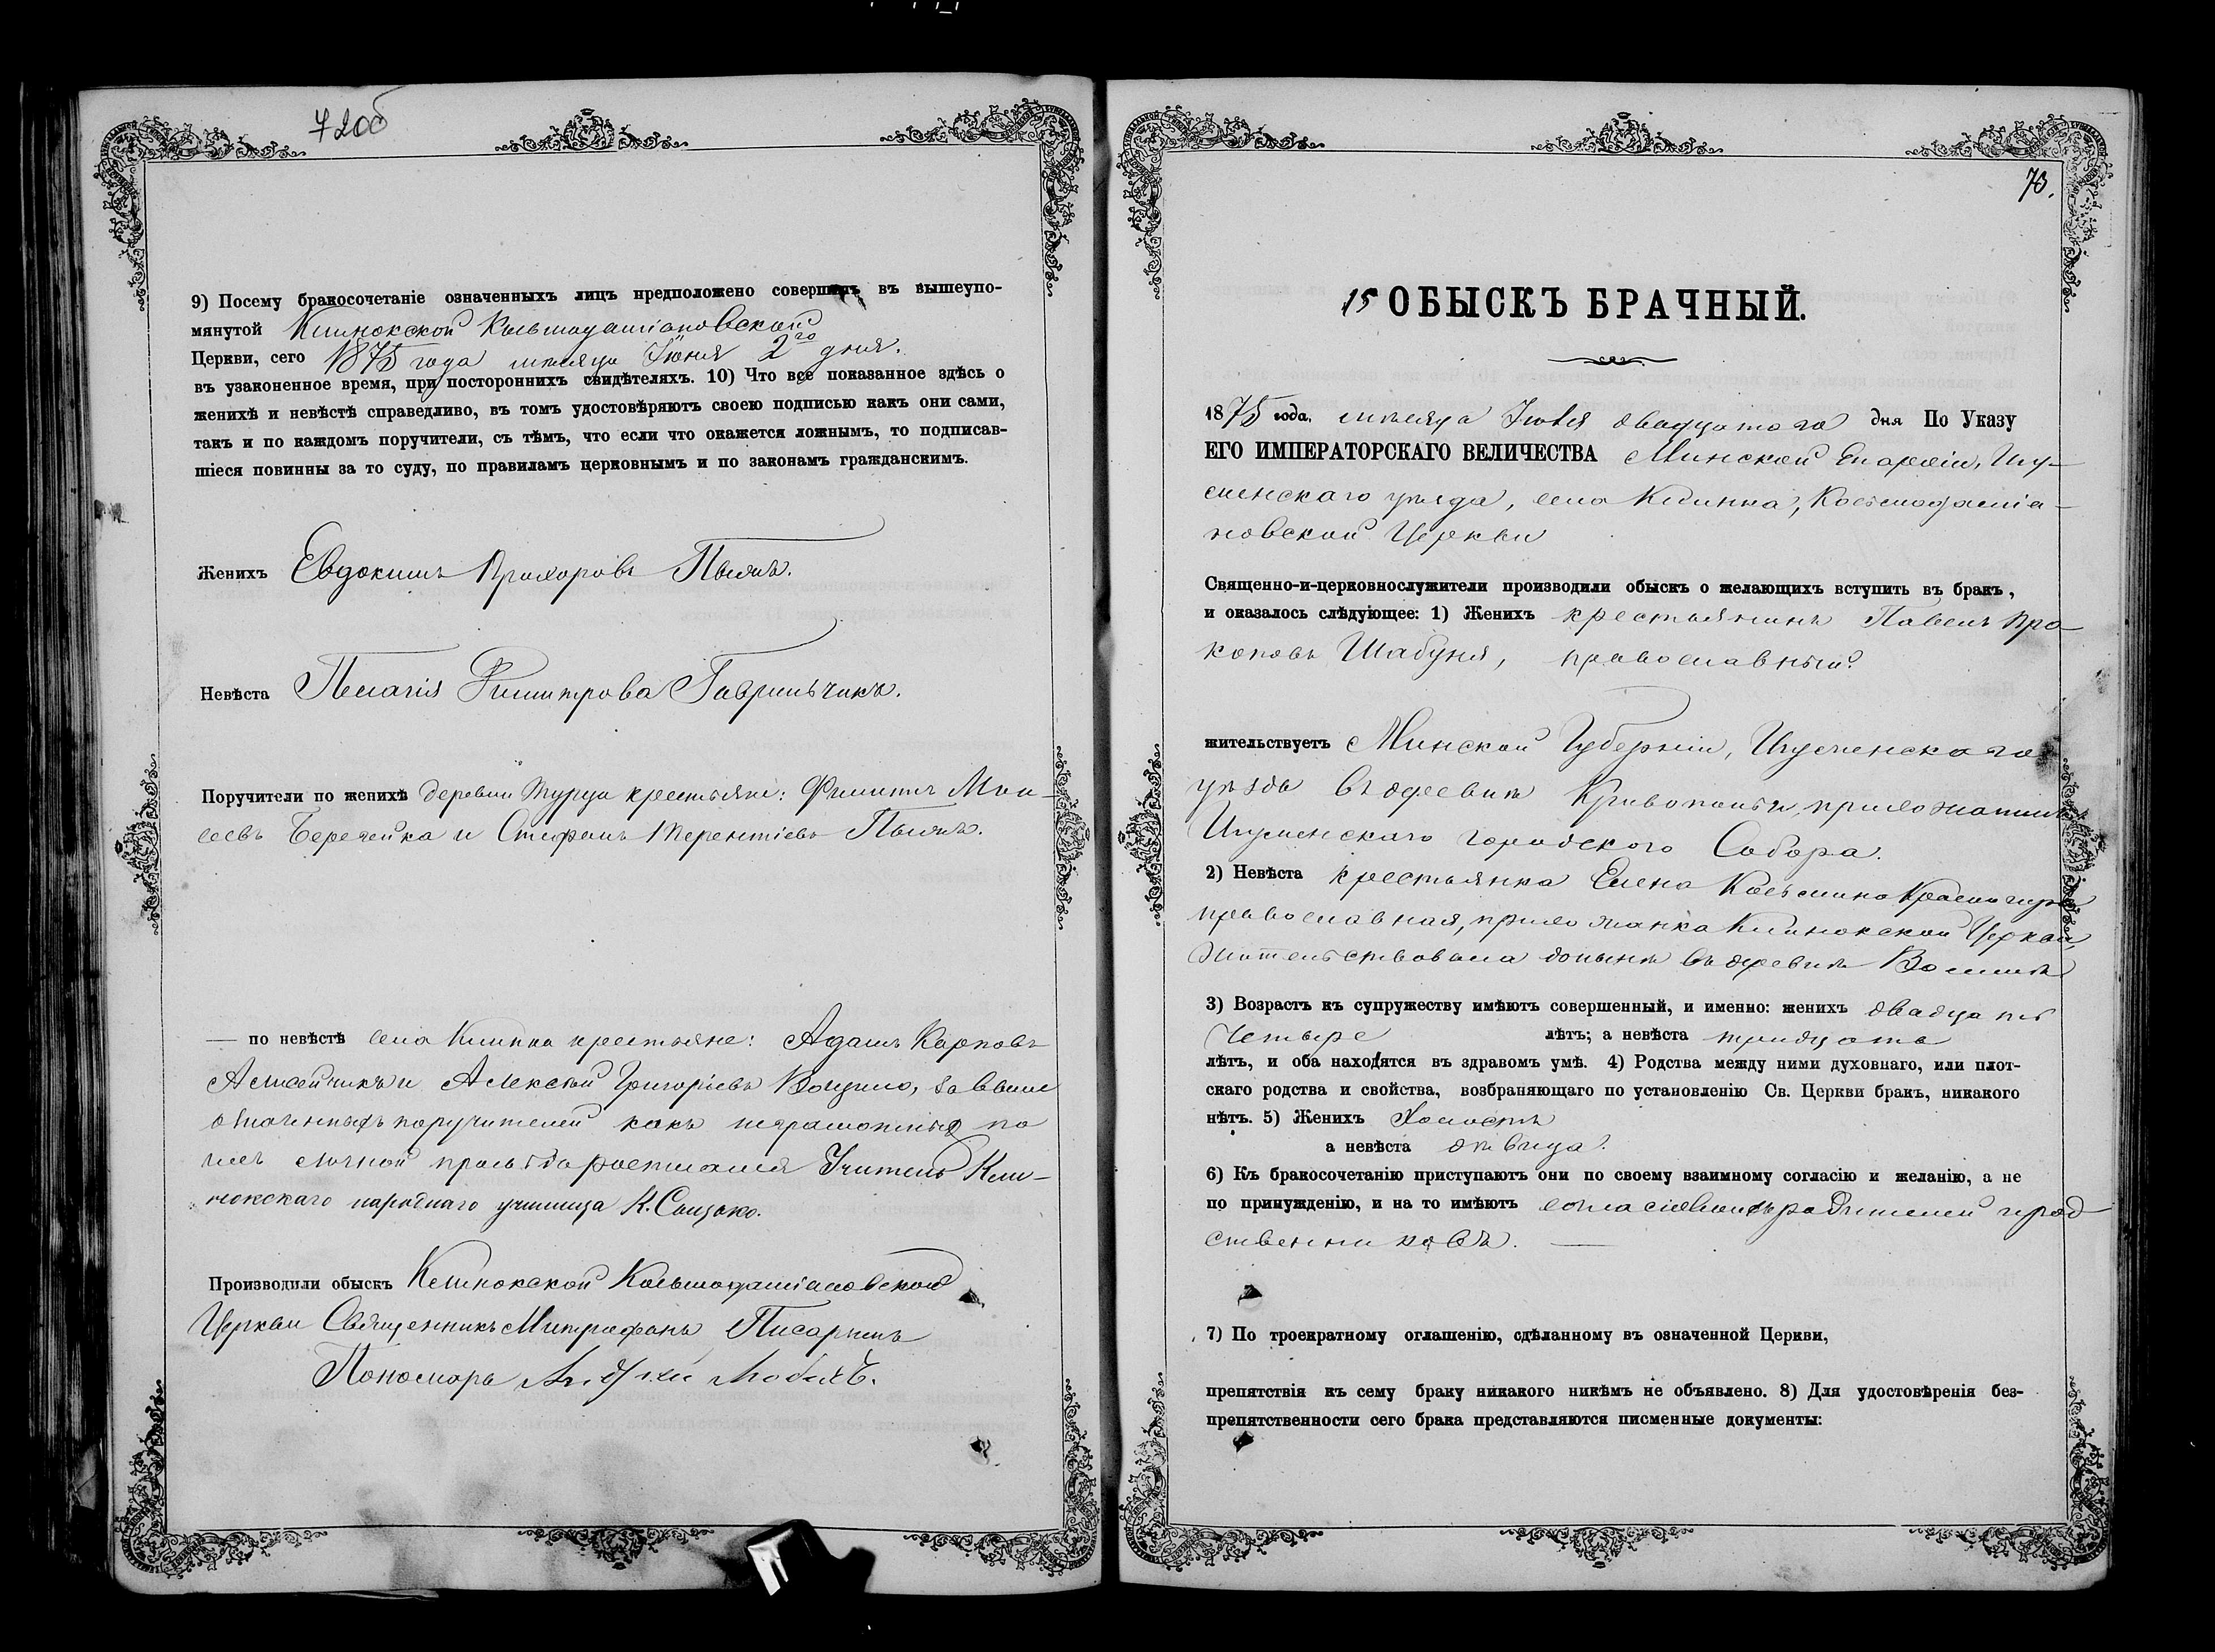 72об
9) Посему бракосочетаніе означенныхъ лицъ предположено совершить въ вышеупо-
мянутой Клинокской Косьмодаміановской
Церкви, сего 1875 года мѣсяца Іюня 2го дня.
въ узаконенное время, при постороннихъ свидѣтеляхъ. 10) Что все показанное здѣсь о
женихѣ и невѣстѣ справедливо, въ томъ удостовѣряютъ своею подписью какъ они сами,
такъ и по каждомъ поручители, съ тѣмъ, что если что окажется ложнымъ, то подписав-
шіеся повинны за то суду, по правиламъ церковнымъ и по законамъ гражданскимъ.
Женихъ Евдокимъ Прохоровъ
Невѣста Пелагія Гаврильчикъ.
Поручители по женихѣ деревни Турца крестьяне: Филиппъ Мои-
сеевъ Беречейка и Стефанъ Терентіевъ
— по невѣстѣ села Клинка крестьяне: Адамъ Карповъ
и Алексѣй Григоріевъ за выше
означенныхъ поручителей какъ неграмотныхъ по
ихъ личной прозьбѣ росписался Учитель Кли-
нокскаго народнаго училища К.
Производили обыскъ Клинокской Косьмодаміановской
Церкви Священникъ Митрофанъ
Пономарь
73.
15 ОБЫСКЪ БРАЧНЫЙ.
1875 года, мѣсяца Іюля двадцатаго дня По Указу
ЕГО ИМПЕРАТОРСКАГО ВЕЛИЧЕСТВА Минской Епархіи, Игу-
менскаго уѣзда, села Клинка, Косьмодаміа-
новской Церкви
Священно-и-церковнослужители производили обыскъ о желающихъ вступить въ бракъ,
и оказалось слѣдующее: 1) Женихъ крестьянинъ Павелъ Про-
коповъ Шабуня, православный.
жительствуетъ Минской Губерніи, Игуменскаго
уѣзда въ деревнѣ Кривополье, прихожанинъ
Игуменскаго городскаго Собора.
2) Невѣста крестьянка Елена Косьмина
православная, прихожанка Клинокской Церкви,
жительствовала донынѣ въ деревнѣ
3) Возрастъ къ супружеству имѣютъ совершенный, и именно: женихъ двадцать
четыре лѣтъ; а невѣста тридцать
лѣтъ, и оба находятся въ здравомъ умѣ. 4) Родства между ними духовнаго, или плот-
скаго родства и свойства, возбраняющаго по установленію Св. Церкви бракъ, никакого
нѣтъ. 5) Женихъ Холостъ
а невѣста дѣвица.
6) Къ бракосочетанію приступаютъ они по своему взаимному согласію и желанію, а не
по принужденію, и на то имѣютъ согласіе своихъ родителей и род
ственниковъ. —
7) По троекратному оглашенію, сдѣланному въ означенной Церкви,
препятствія къ сему браку никакого никѣмъ не объявлено. 8) Для удостовѣренія без-
препятственности сего брака представляются писменные документы: